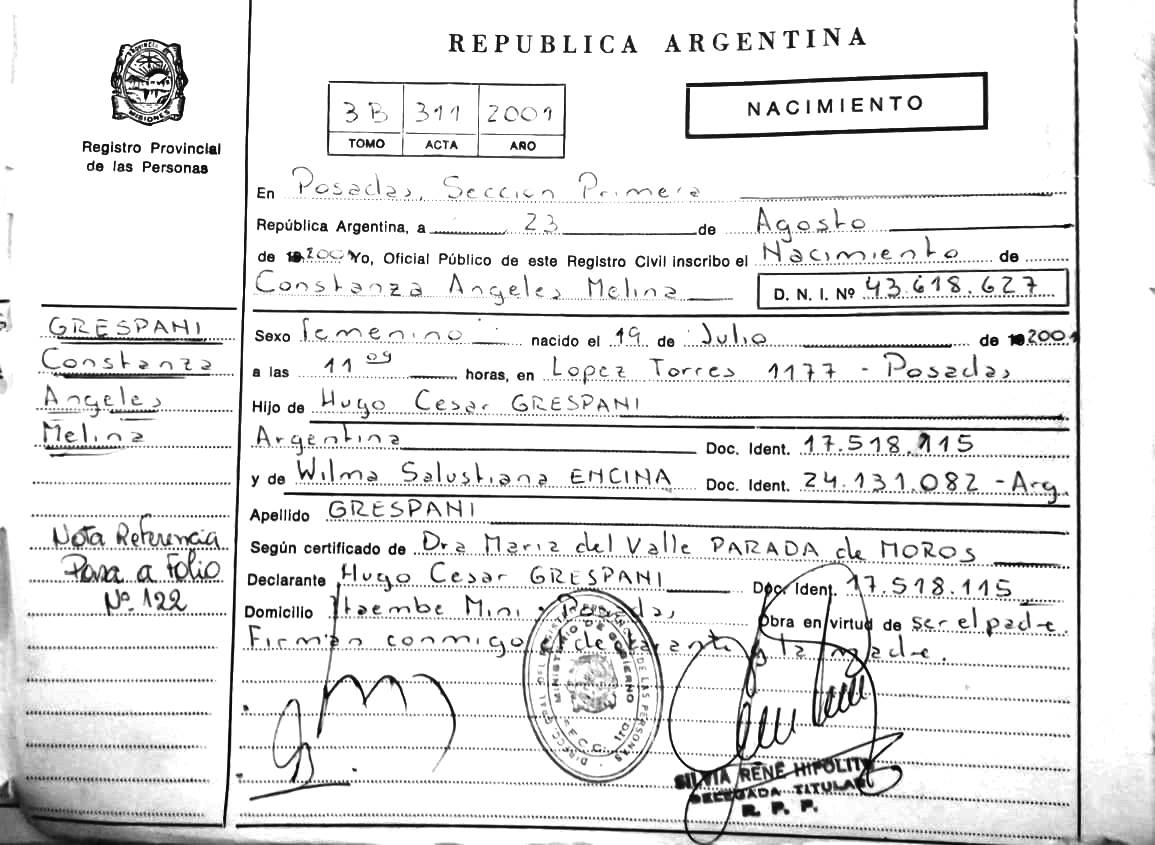 REPUBLICA ARGENTINA
PROVINCIA DE
MISIONES
Registro Provincial
de las Personas
3B 311 2001
TOMO ACTA AÑO
NACIMIENTO
En Posadas, Seccion Primera
República Argentina, a 23 de Agosto
de 2001 Yo, Oficial Público de este Registro Civil inscribo el Nacimiento de
Constanza Angeles Melina D. N. I. Nº 43.618.627
GRESPANI
Constanza
Angeles
Melina
Sexo femenino nacido el 19 de Julio de 2001
a las 11 09 horas, en Lopez Torres 1177 - Posadas
Hijo de Hugo Cesar GRESPANI
Argentina Doc. Ident. 17.518.115
y de Wilma Salustiana ENCINA Doc. Ident. 24.131.082 - Arg.
Apellido GRESPANI
Según certificado de Dra Maria del Valle PARADA de MOROS
Declarante Hugo Cesar GRESPANI Doc. Ident. 17.518.115
Domicilio Itaembe Mini, Posadas Obra en virtud de ser el padre.
Firman conmigo declarante y la madre.
Nota Referencia
Pasa a Folio
Nº 122
MINISTERIO DE GOBIERNO
DE LAS PERSONAS
SILVIA RENE HIPOLITO
DELEGADA TITULAR
R. P. P.